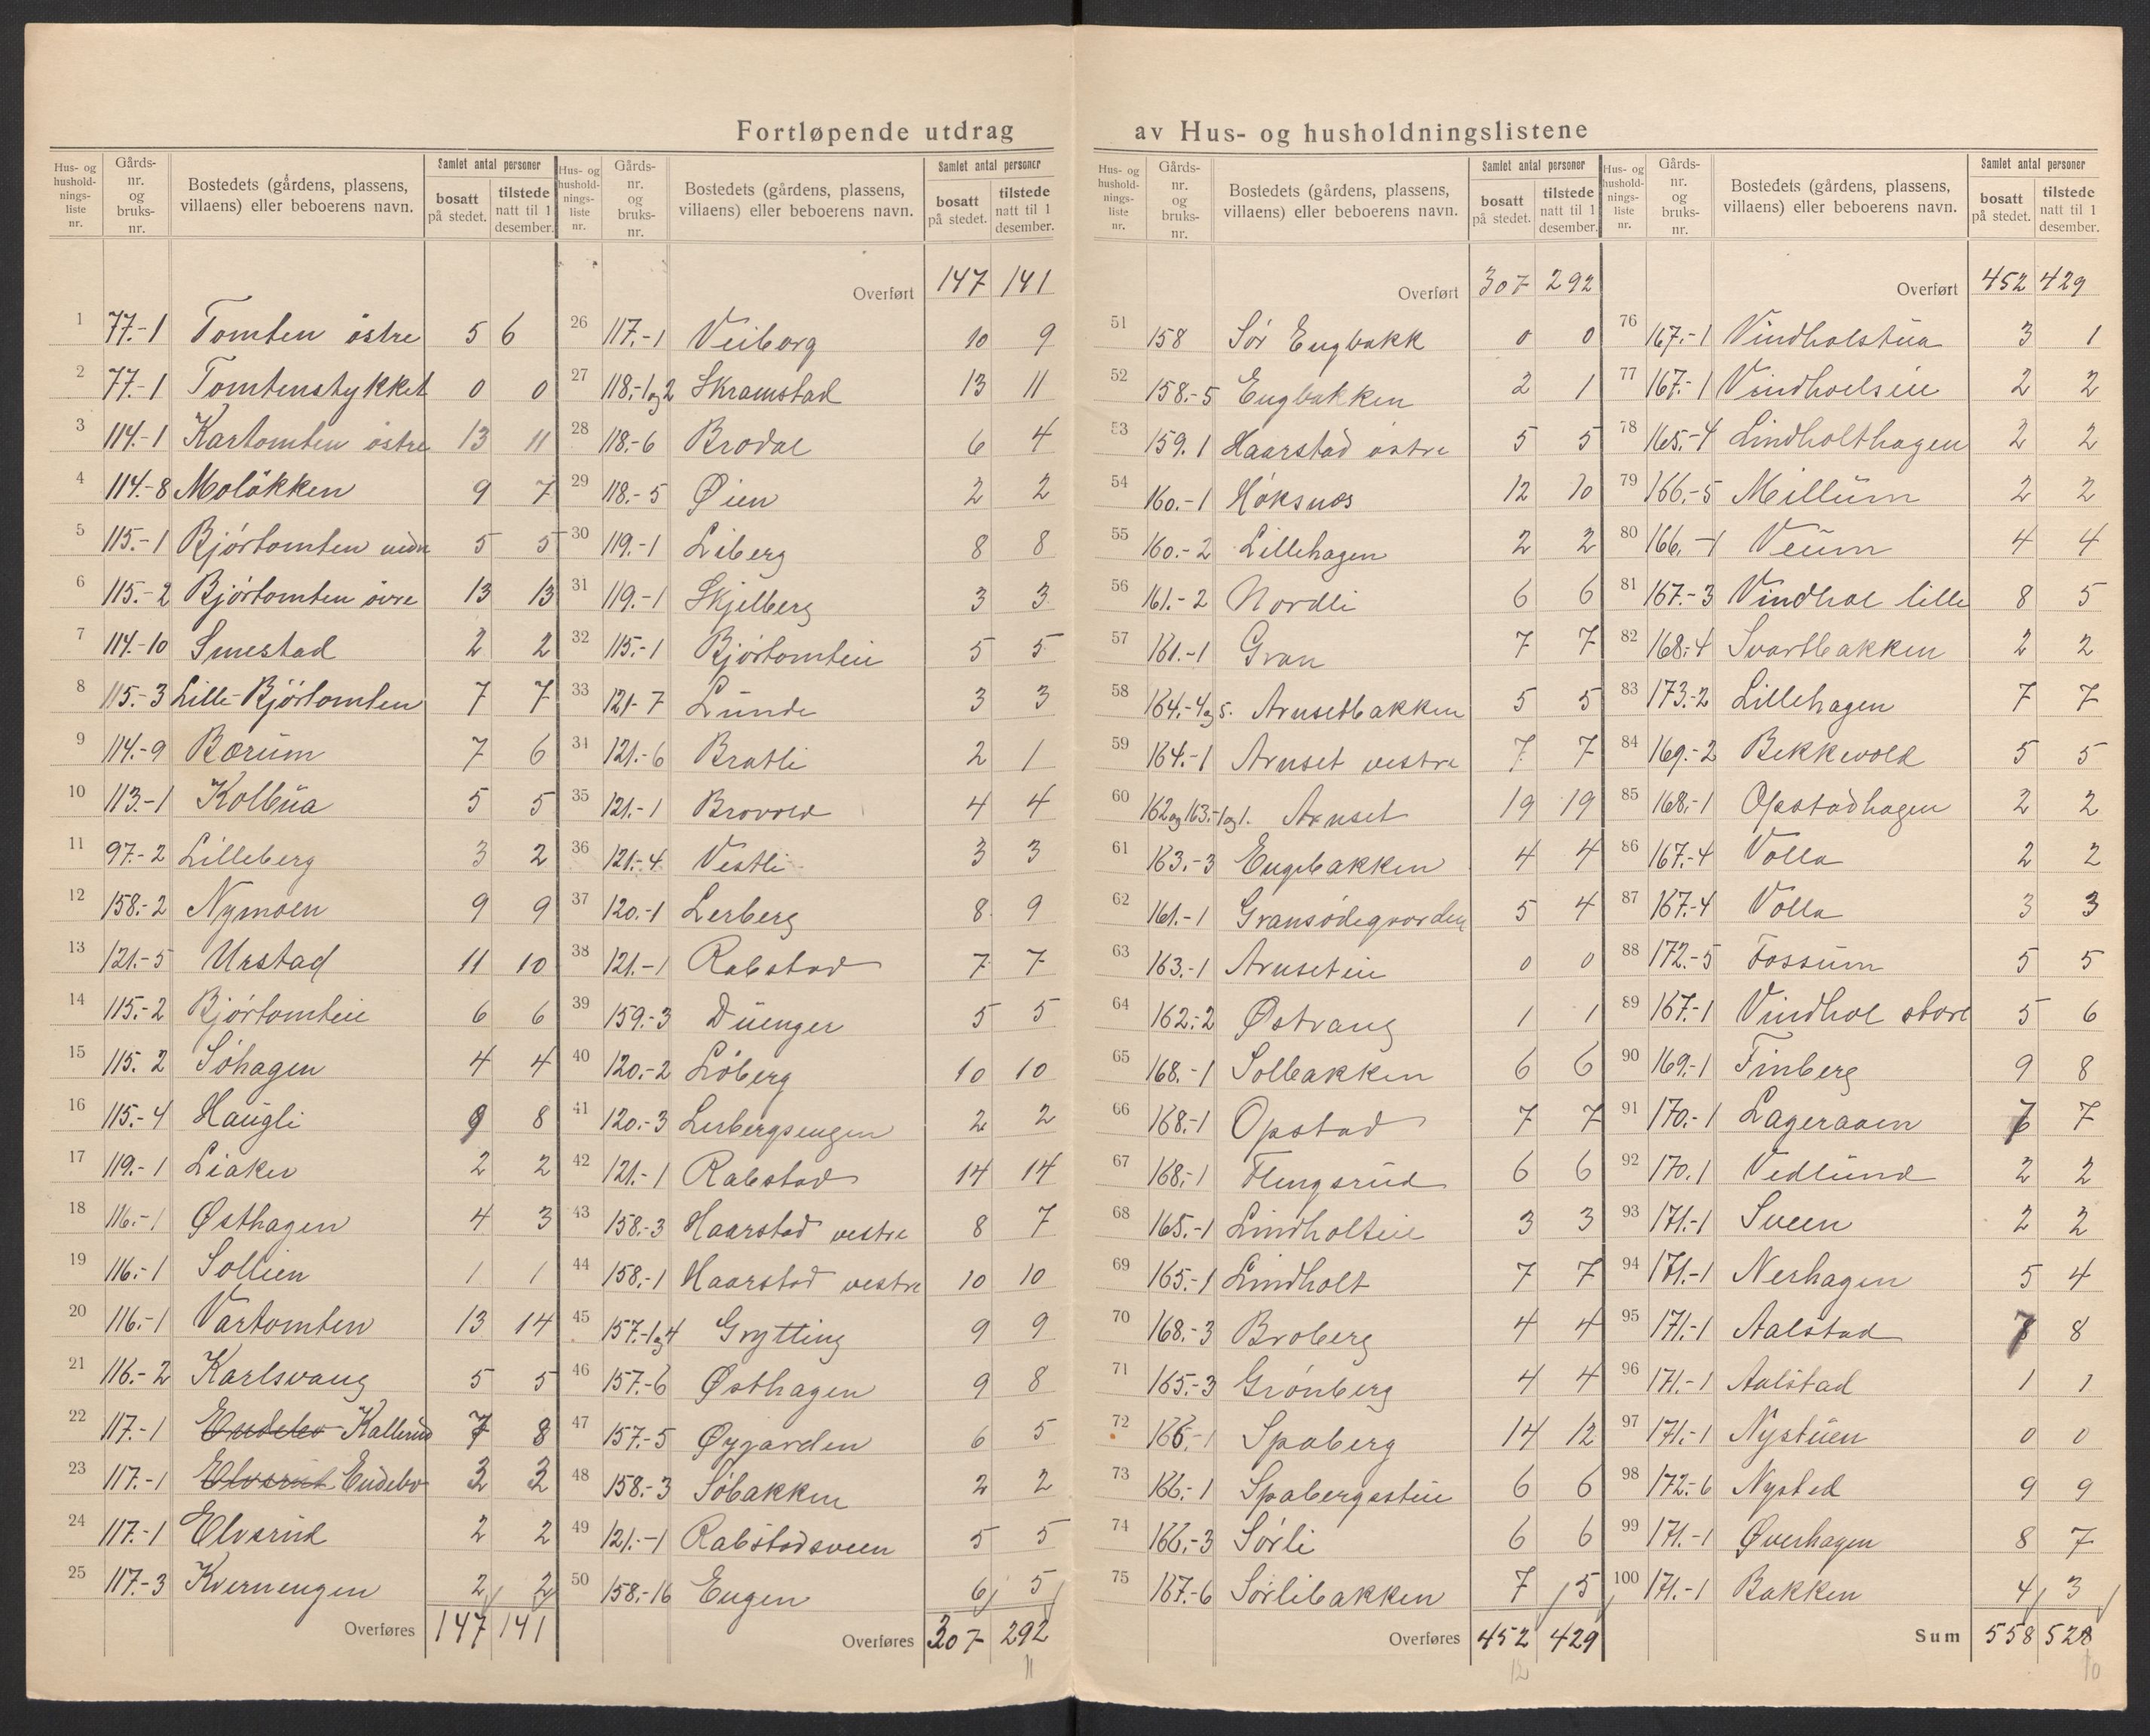 Fortløpende utdrag av Hus- og husholdningslistene
Hus- og husholdnings-liste nr. Gårds-nr. og bruks-nr. Bostedets (gårdens, plassens, villaens) eller beboerens navn. Samlet antal personer bosatt på stedet. tilstede natt til 1 desember.
1 77.-1 Tomten östre 5 6
2 77.-1 Tomtenstykket 0 0
3 114.-1 Kartomten östre 13 11
4 114.-8 Moløkken 9 7
5 115.-1 Bjórtomten nedr 5 5
6 115.-2 Bjórtomten övre 13 13
7 114.-10 Smestad 2 2
8 115.-3 Lille-Bjórtomten 7 7
9 114.-9 Bærum 7 6
10 113.-1 Kolbua 5 5
11 97.-2 Lilleberg 3 2
12 158.-2 Nymoen 9 9
13 121.-5 Urstad 11 10
14 115.-2 Bjórtomteie 6 6
15 115. 2 Söhagen 4 4
16 115.-4 Haugli 9 8
17 119.-1 Liaker 2 2
18 116.-1 Østhagen 4 3
19 116.-1 Sollien 1 1
20 116.-1 Vartomten 13 14
21 116.-2 Karlsvang 5 5
22 117.-1 Endebo Kallerud 7 8
23 117.-1 Elvsrud Endebo 3 3
24 117.-1 Elvsrud 2 2
25 117.-3 Kvernengen 2 2
Overføres 147 141
Hus- og husholdnings-liste nr. Gårds-nr. og bruks-nr. Bostedets (gårdens, plassens, villaens) eller beboerens navn. Samlet antal personer bosatt på stedet. tilstede natt til 1 desember.
Overført 147 141
26 117.-1 Veiborg 10 9
27 118.-1og2 Skramstad 13 11
28 118.-6 Brodal 6 4
29 118.-5 Øien 2 2
30 119.-1 Liberg 8 8
31 119.-1 Skjelberg 3 3
32 115.-1 Bjórtomteie 5 5
33 121-7 Lunde 3 3
34 121.-6 Bratli 2 1
35 121.-1 Brovold 4 4
36 121.-4 Vestli 3 3
37 120.-1 Lerberg 8 9
38 121.-1 Rabstad 7 7
39 159.-3 Duenger 5 5
40 120.-2 Löberg 10 10
41 120.-3 Lerbergsengen 2 2
42 121.-1 Rabstad 14 14
43 158.-3 Haarstad vestre 8 7
44 158.-1 Haarstad vestre 10 10
45 157.-1og4 Grytting 9 9
46 157.-6 Østhagen 9 8
47 157.-5 Øygarden 6 5
48 158.-3 Söbakken 2 2
49 121.-1 Rabstadsveen 5 5
50 158.-16 Engen 6 5
Overføres 307 292
11
Hus- og husholdnings-liste nr. Gårds-nr. og bruks-nr. Bostedets (gårdens, plassens, villaens) eller beboerens navn. Samlet antal personer bosatt på stedet. tilstede natt til 1 desember.
Overført 307 292
51 158 Sör Engbakk 0 0
52 158.-5 Engbakken 2 1
53 159.1 Haarstad östre 5 5
54 160.-1 Höksnes 12 10
55 160.-2 Lillehagen 2 2
56 161.-2 Nordli 6 6
57 161.-1 Gran 7 7
58 164.-4og5. Arnsetbakken 5 5
59 164.-1 Arnset vestre 7 7
60 162og163.-1og1. Arnset 19 19
61 163.-3 Engebakken 4 4
62 161.-1 Gransödegaarden 5 4
63 163.-1 Arnseteie 0 0
64 162.-2 Østvang 1 1
65 168.-1 Solbakken 6 6
66 168.-1 Opstad 7 7
67 168.-1 Flengsrud 6 6
68 165.-1 Lindholteie 3 3
69 165.-1 Lindholt 7 7
70 168.-3 Broberg 4 4
71 165.-3 Grönberg 4 4
72 166.-1 Spaberg 14 12
73 166.-1 Spabergseteie 6 6
74 166.-3 Sörli 6 6
75 167.-6 Sörlibakken 7 5
Overføres 452 429
12
Hus- og husholdnings-liste nr. Gårds-nr. og bruks-nr. Bostedets (gårdens, plassens, villaens) eller beboerens navn. Samlet antal personer bosatt på stedet. tilstede natt til 1 desember.
Overført 452 429
76 167.-1 Vindholstua 3 1
77 167.-1 Vindhoelseie 2 2
78 165.-4 Lindholthagen 2 2
79 166.-5 Millum 2 2
80 166.-1 Veum 4 4
81 167.-3 Vindhol lille 8 5
82 168.-4 Svartbakken 2 2
83 173.-2 Lillehagen 7 7
84 169.-2 Bekkevold 5 5
85 168.-1 Opstadhagen 2 2
86 167.-4 Volla 2 2
87 167.-4 Volla 3 3
88 172.-5 Fossum 5 5
89 167.-1 Vindhol store 5 6
90 169.-1 Finberg 9 8
91 170.-1 Lageraaen 7 7
92 170.1 Vedlund 2 2
93 171.-1 Sveen 2 2
94 171.-1 Nerhagen 5 4
95 171.-1 Aalstad 7 8
96 171.-1 Aalstad 1 1
97 171.-1 Nystuen 0 0
98 172.-6 Nysted 9 9
99 171.-1 Øverhagen 8 7
100 171.-1 Bakken 4 3
Sum 558 528
10